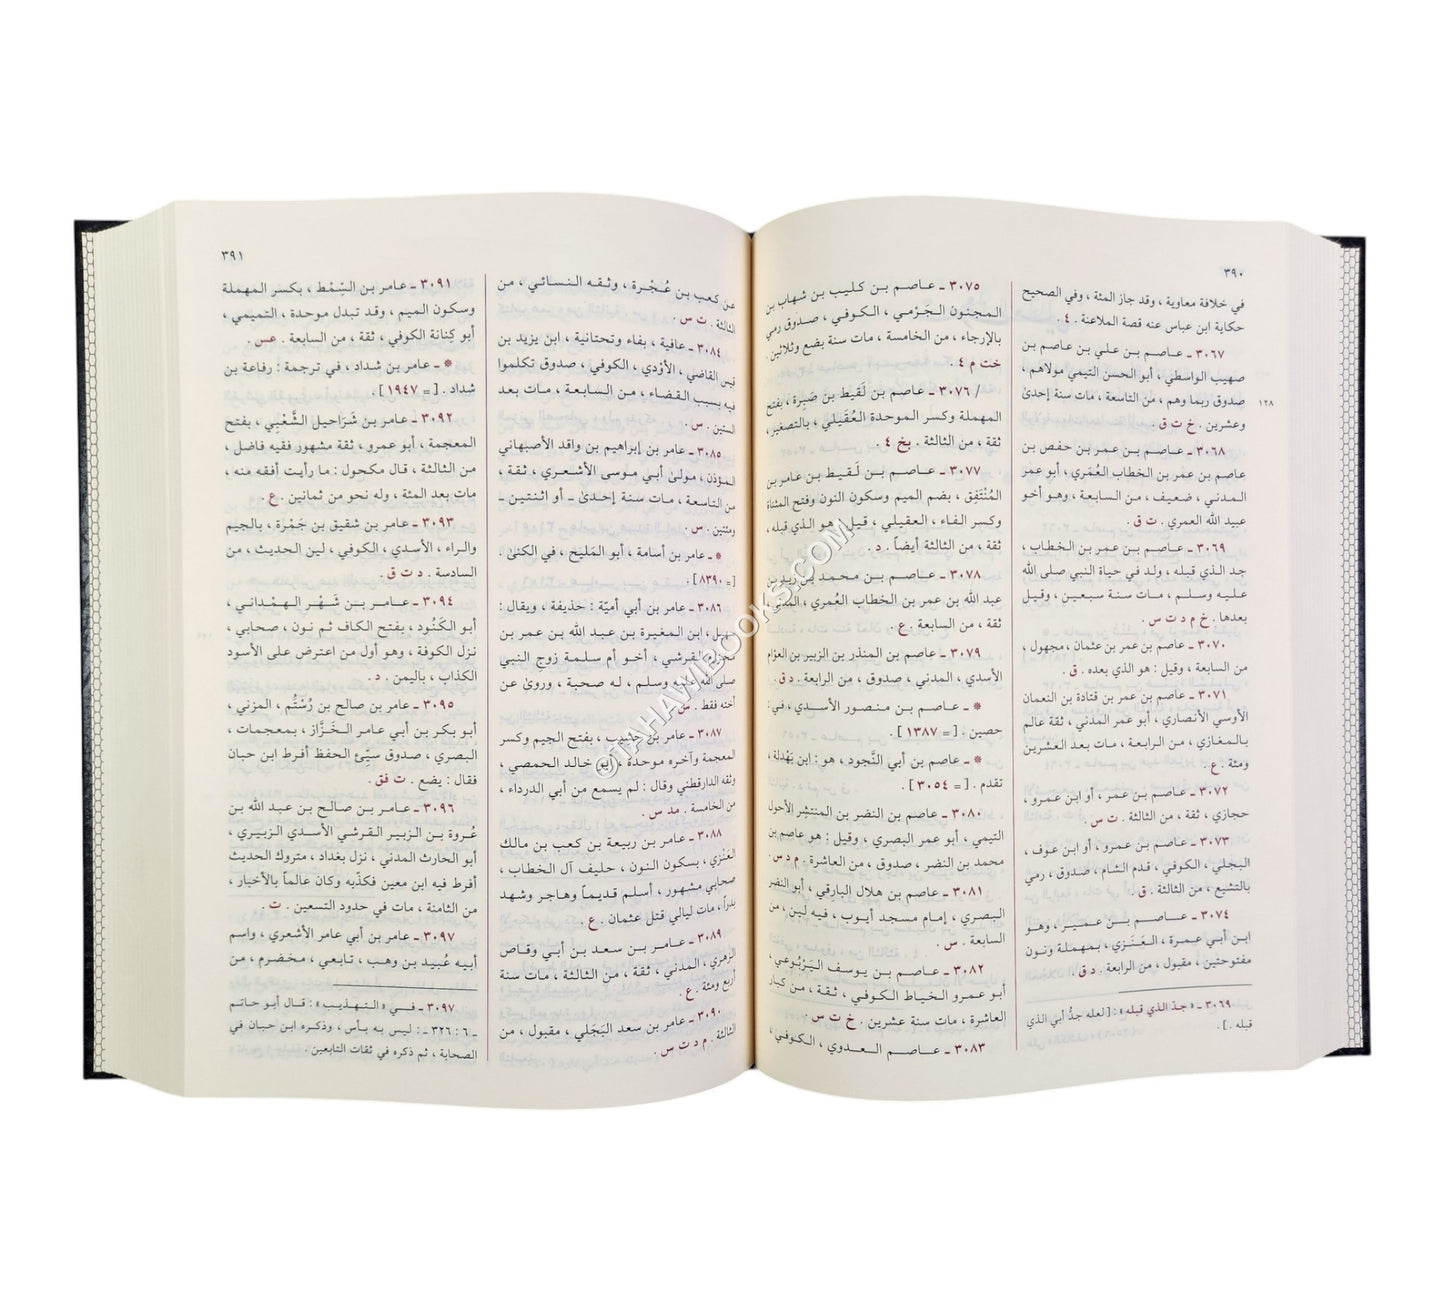 ٣٩٠
في خلافة معاوية ، وقد جاز المئة ، وفي الصحيح
حكاية ابن عباس عنه قصة الملاعنة . ٤ .
٣٠٦٧ ـ عاصم بن علي بن عاصم بن
صهيب الواسطي ، أبو الحسن التيمي مولاهم ،
صدوق ربما وهم ، من التاسعة ، مات سنة إحدى
١٢٨
وعشرين . خ ت ق .
٣٠٦٨ ـ عاصم بن عمر بن حفص بن
عاصم بن عمر بن الخطاب العُمَري ، أبو عمر
المدني ، ضعيف ، من السابعة ، وهو أخو
عبيد الله العمري . ت ق .
٣٠٦٩ ـ عاصم بن عمر بن الخطاب ،
جد الذي قبله ، ولد في حياة النبي صلى الله
عليه وسلم ، مات سنة سبعين ، وقيل
بعدها . خ م د ت س .
٣٠٧٠ ـ عاصم بن عمر بن عثمان ، مجهول ،
من السابعة ، وقيل : هو الذي بعده . ق .
٣٠٧١ ـ عاصم بن عمر بن قتادة بن النعمان
الأوسي الأنصاري ، أبو عمر المدني ، ثقة عالم
بالمغازي ، من الرابعة ، مات بعد العشرين
ومئة . ع .
٣٠٧٢ ـ عاصم بن عمر ، أو ابن عمرو ،
حجازي ، ثقة ، من الثالثة . ت س .
٣٠٧٣ ـ عاصم بن عمرو ، أو ابن عوف ،
البجلي ، الكوفي ، قدم الشام ، صدوق ، رمي
بالتشيع ، من الثالثة . ق .
٣٠٧٤ ـ عاصم بن عمير ، وهو
ابن أبي عمرة ، العَنَزي ، بمهملة ونون
مفتوحتين ، مقبول ، من الرابعة . د ق .
٣٠٦٩ ـ « جدّ الذي قبله » : [لعله جدُّ أبي الذي
قبله .] .
٣٠٧٥ ـ عاصم بن كليب بن شهاب بن
المجنون الجَرْمي ، الكوفي ، صدوق رمي
بالإرجاء ، من الخامسة ، مات سنة بضع وثلاثين .
خت م ٤ .
/ ٣٠٧٦ ـ عاصم بن لَقيط بن صَبِرة ، بفتح
المهملة وكسر الموحدة العُقَيلي ، بالتصغير ،
ثقة ، من الثالثة . بخ ٤ .
٣٠٧٧ ـ عاصم بن لَقيط بن عامر بن
المُنْتَفِق ، بضم الميم وسكون النون وفتح المثناة
وكسر الفاء ، العقيلي ، قيل : هو الذي قبله ،
ثقة ، من الثالثة أيضاً . د .
٣٠٧٨ ـ عاصم بن محمد بن زيد بن
عبد الله بن عمر بن الخطاب العُمري ، المدني ،
ثقة ، من السابعة . ع .
٣٠٧٩ ـ عاصم بن المنذر بن الزبير بن العوّام
الأسدي ، المدني ، صدوق ، من الرابعة . د ق .
* ـ عاصم بن منصور الأسدي ، في :
حصين . [= ١٣٨٧] .
* ـ عاصم بن أبي النَّجود ، هو : ابن بَهْدلة ،
تقدم . [= ٣٠٥٤] .
٣٠٨٠ ـ عاصم بن النضر بن المنتشِر الأحول
التيمي ، أبو عمر البصري ، وقيل : هو عاصم بن
محمد بن النضر ، صدوق ، من العاشرة . م د س .
٣٠٨١ ـ عاصم بن هلال البارقي ، أبو النضر
البصري ، إمام مسجد أيوب ، فيه لين ، من
السابعة . س .
٣٠٨٢ ـ عاصم بن يوسف اليَرْبُوعي ،
أبو عمرو الخياط الكوفي ، ثقة ، من كبار
العاشرة ، مات سنة عشرين . خ ت س .
٣٠٨٣ ـ عاصم العدوي ، الكوفي ،
٣٩١
عن كعب بن عُجْرة ، وثقه النسائي ، من
الثالثة . ت س .
٣٠٨٤ ـ عافية ، بفاء وتحتانية ، ابن يزيد بن
قيس القاضي ، الأوْدي ، الكوفي ، صدوق تكلموا
فيه بسبب القضاء ، من السابعة ، مات بعد
الستين . س .
٣٠٨٥ ـ عامر بن إبراهيم بن واقد الأصبهاني
المؤذن ، مولى أبي موسى الأشعري ، ثقة ،
من التاسعة ، مات سنة إحدى ـ أو اثنتين ـ
ومئتين . س .
* ـ عامر بن أسامة ، أبو المَليح ، في الكنى .
[= ٨٣٩٠] .
٣٠٨٦ ـ عامر بن أبي أميّة : حذيفة ، ويقال :
سهيل ، ابن المغيرة بن عبد الله بن عمر بن
مخزوم القرشي ، أخو أم سلمة زوج النبي
صلى الله عليه وسلم ، له صحبة ، وروى عن
أخته فقط . س .
٣٠٨٧ ـ عامر بن جَشِيب ، بفتح الجيم وكسر
المعجمة وآخره موحدة ، أبو خالد الحمصي ،
وثقه الدارقطني وقال : لم يسمع من أبي الدرداء ،
من الخامسة . مد س .
٣٠٨٨ ـ عامر بن ربيعة بن كعب بن مالك
العَنْزي ، بسكون النون ، حليف آل الخطاب ،
صحابي مشهور ، أسلم قديماً وهاجر وشهد
بدراً ، مات ليالي قتل عثمان . ع .
٣٠٨٩ ـ عامر بن سعد بن أبي وقاص
الزهري ، المدني ، ثقة ، من الثالثة ، مات سنة
أربع ومئة . ع .
٣٠٩٠ ـ عامر بن سعد البَجَلي ، مقبول ، من
الثالثة . م د ت س .
٣٠٩١ ـ عامر بن السِّمْط ، بكسر المهملة
وسكون الميم ، وقد تبدل موحدة ، التميمي ،
أبو كِنانة الكوفي ، ثقة ، من السابعة . عس .
* ـ عامر بن شداد ، في ترجمة : رفاعة بن
شداد . [= ١٩٤٧] .
٣٠٩٢ ـ عامر بن شَرَاحيل الشَّعْبي ، بفتح
المعجمة ، أبو عمرو ، ثقة مشهور فقيه فاضل ،
من الثالثة ، قال مكحول : ما رأيت أفقه منه ،
مات بعد المئة ، وله نحو من ثمانين . ع .
٣٠٩٣ ـ عامر بن شقيق بن جَمْرة ، بالجيم
والراء ، الأسدي ، الكوفي ، لين الحديث ، من
السادسة . د ت ق .
٣٠٩٤ ـ عامر بن شَهْر الهمْداني ،
أبو الكَنُود ، بفتح الكاف ثم نون ، صحابي ،
نزل الكوفة ، وهو أول من اعترض على الأسود
الكذاب ، باليمن . د .
٣٠٩٥ ـ عامر بن صالح بن رُسْتُم ، المزني ،
أبو بكر بن أبي عامر الخَزَّاز ، بمعجمات ،
البصري ، صدوق سيّئ الحفظ أفرط ابن حبان
فقال : يضع . ت فق .
٣٠٩٦ ـ عامر بن صالح بن عبد الله بن
عُروة بن الزبير القرشي الأسدي الزبيري ،
أبو الحارث المدني ، نزل بغداد ، متروك الحديث
أفرط فيه ابن معين فكذّبه وكان عالماً بالأخبار ،
من الثامنة ، مات في حدود التسعين . ت .
٣٠٩٧ ـ عامر بن أبي عامر الأشعري ، واسم
أبيه عُبيد بن وهب ، تابعي ، مخضرم ، من
٣٠٩٧ ـ في « التهذيب » : قال أبو حاتم
ـ ٦ : ٣٢٦ ـ : ليس به بأس ، وذكره ابن حبان في
الصحابة ، ثم ذكره في ثقات التابعين .
©TAHAWIBOOKS.COM